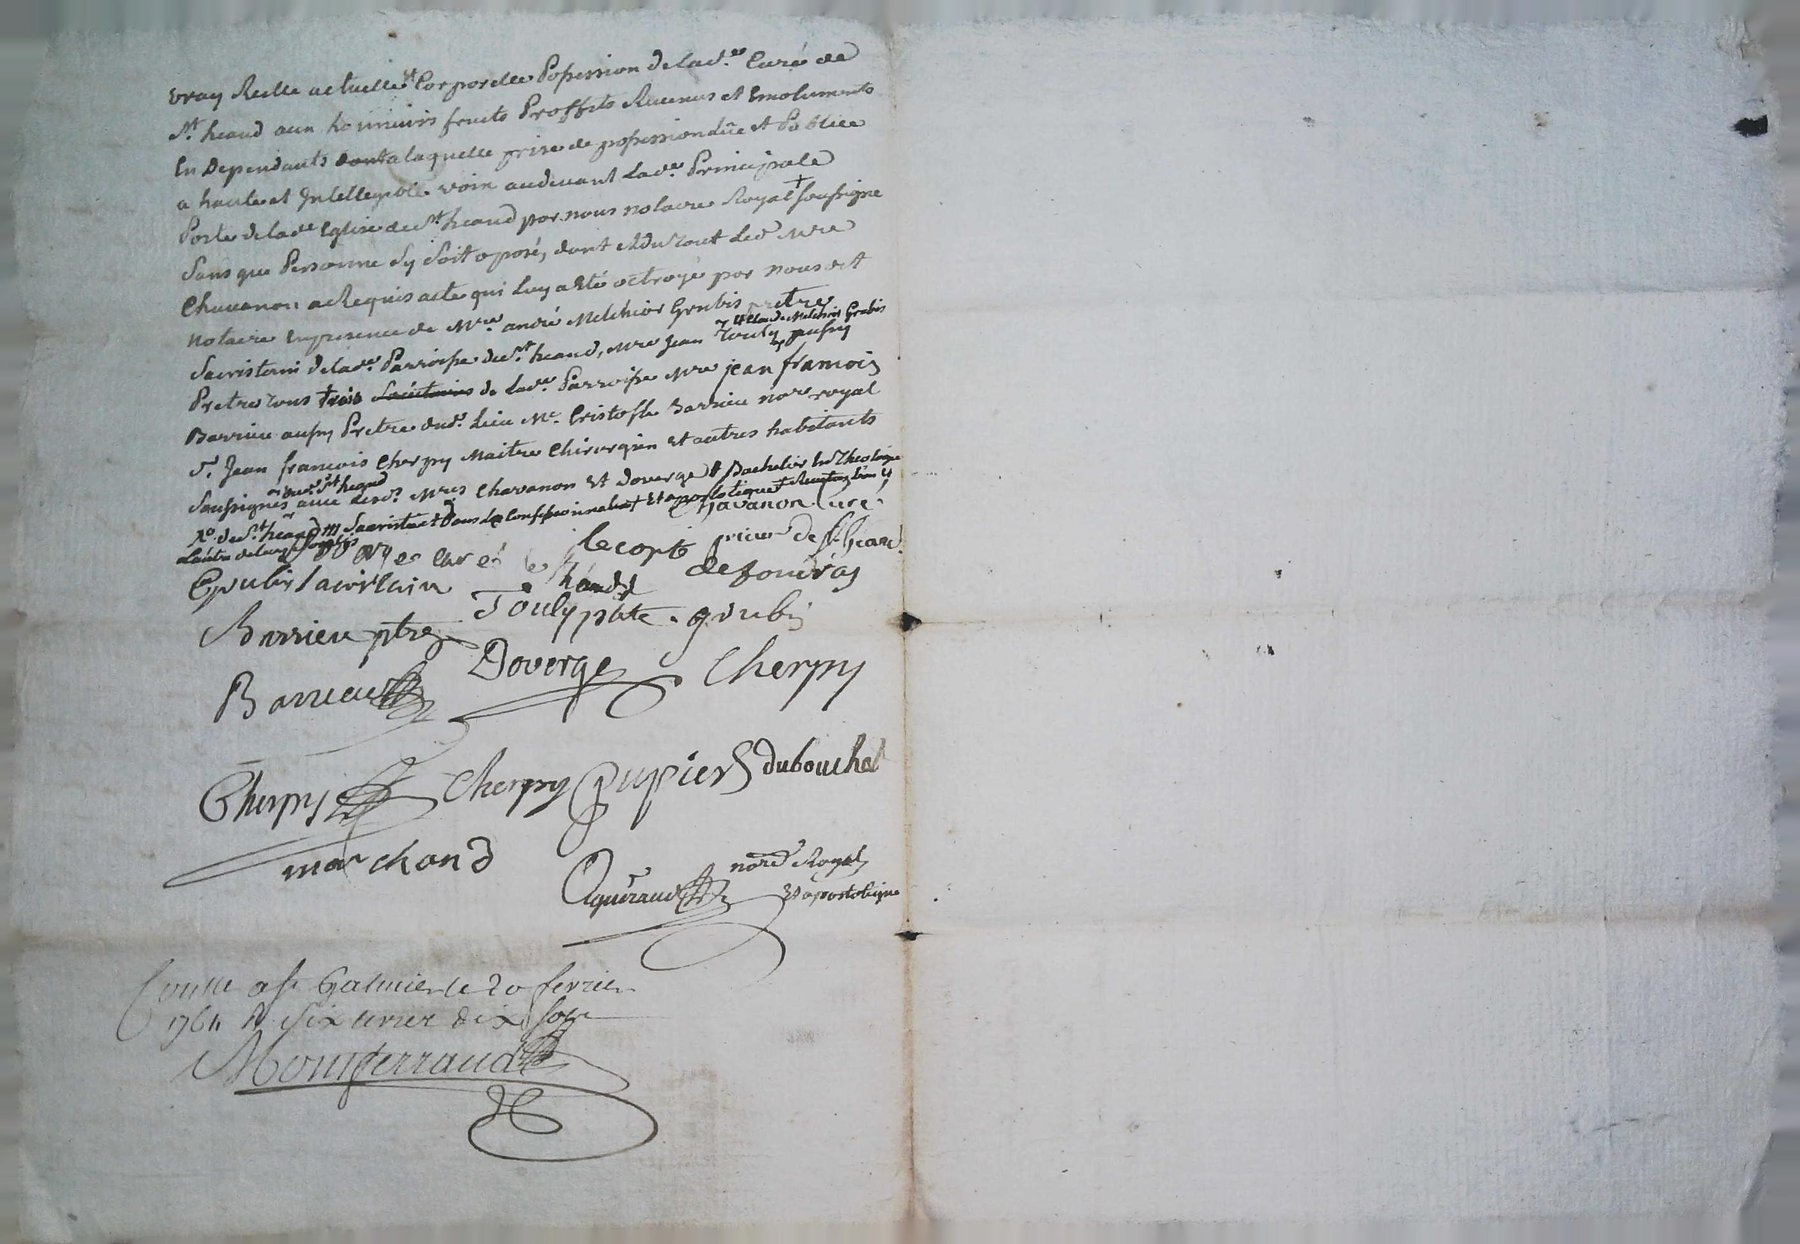 vray Reelle actuelle et Corporelle Possession de lad.e Cure de
St. heand aux honneurs fruits Proffits Revenus et Emoluments
En Dependants laquelle prise de possession düe et Publiée
a haute et Intellegible voix audevant Lad.e Principale
Porte de lad.e Eglise de St. heand par nous notaire Royal + soussigne
Sans que Personne sy soit oposé, dont et du tout led.t Mre
Chavanon a Requis acte qui Luy a Eté octroyé par nous dit
Notaire En presence de Mre. andré Melchior Grubis pretre
Sacristain de lad.e Parroisse de St. heand, Mre Jean Touly aussy
Melchior Grubis
Pretre tous de Lad.e Parroisse Mre jean francois
Barrieu aussy Pretre dud. Lieu Me. Cristofle Barrieu nore royal
Sr. Jean francois Cherpy Maitre Chirurgien et autres habitants
Soussignés avec lesd. Mres Chavanon et Doverge + Bachelier En Theologie
de St. heand
+ Et apostolique +
Chavanon Curé
Doverge curé
le comte prieur de St. heand
Grubis sacristain
de foudras
Touly pbtre
grubis
Barrieu ptre
Doverge
Cherpy
Barrieu
Cherpy
Cherpy
Pupier
dubouchet
marchand
nore Royal
Et apostolique
a St Galmier le 20 fevrier
1764 R six livres dix sols
Montferrand